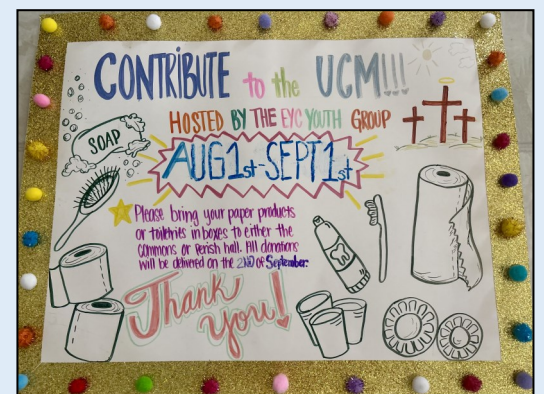 CONTRIBUTE to the UCM!!!
HOSTED BY THE EYC YOUTH GROUP
AUG 1st-SEPT 1st
SOAP
Please bring your paper products
or toiletries in boxes to either the
Commons or Perish hall. All donations
will be delivered on the 2ND of September.
Thank
you!